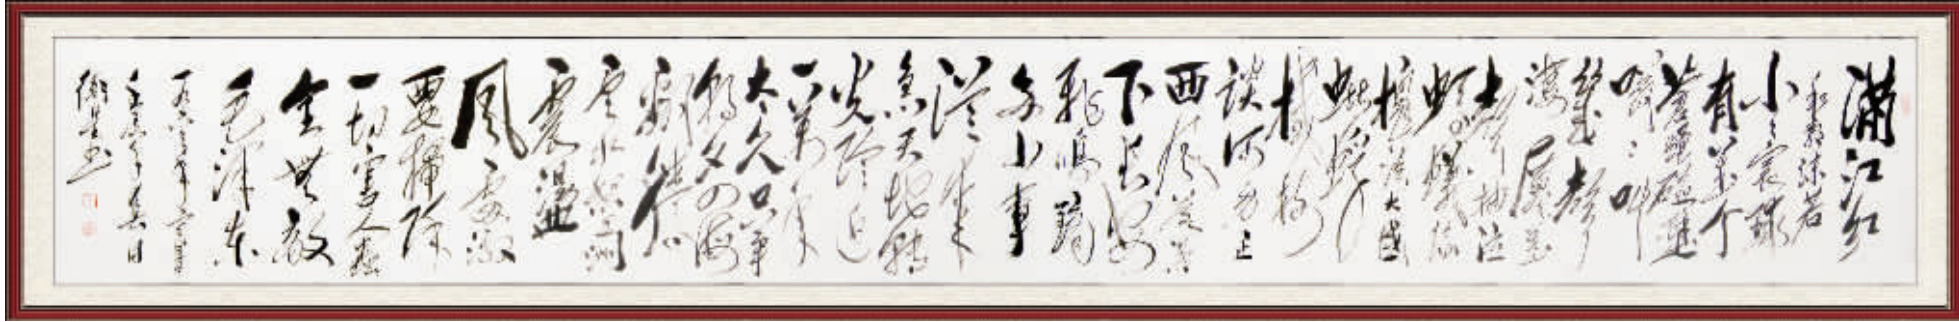 满江红
和郭沫若
小小寰球
有几个
苍蝇碰壁
嗡嗡叫
幾声
凄厉幾
声抽泣
蚂蚁缘
槐夸大国
蚍蜉
撼树
谈何易正
西风落叶
下长安
飞鸣镝
多少事
从来
急天地转
光阴迫
一万年
太久只争
朝夕四海
翻腾
云水怒五洲
震荡
风雷激
要掃除
一切害人虫
全無敌
毛泽东